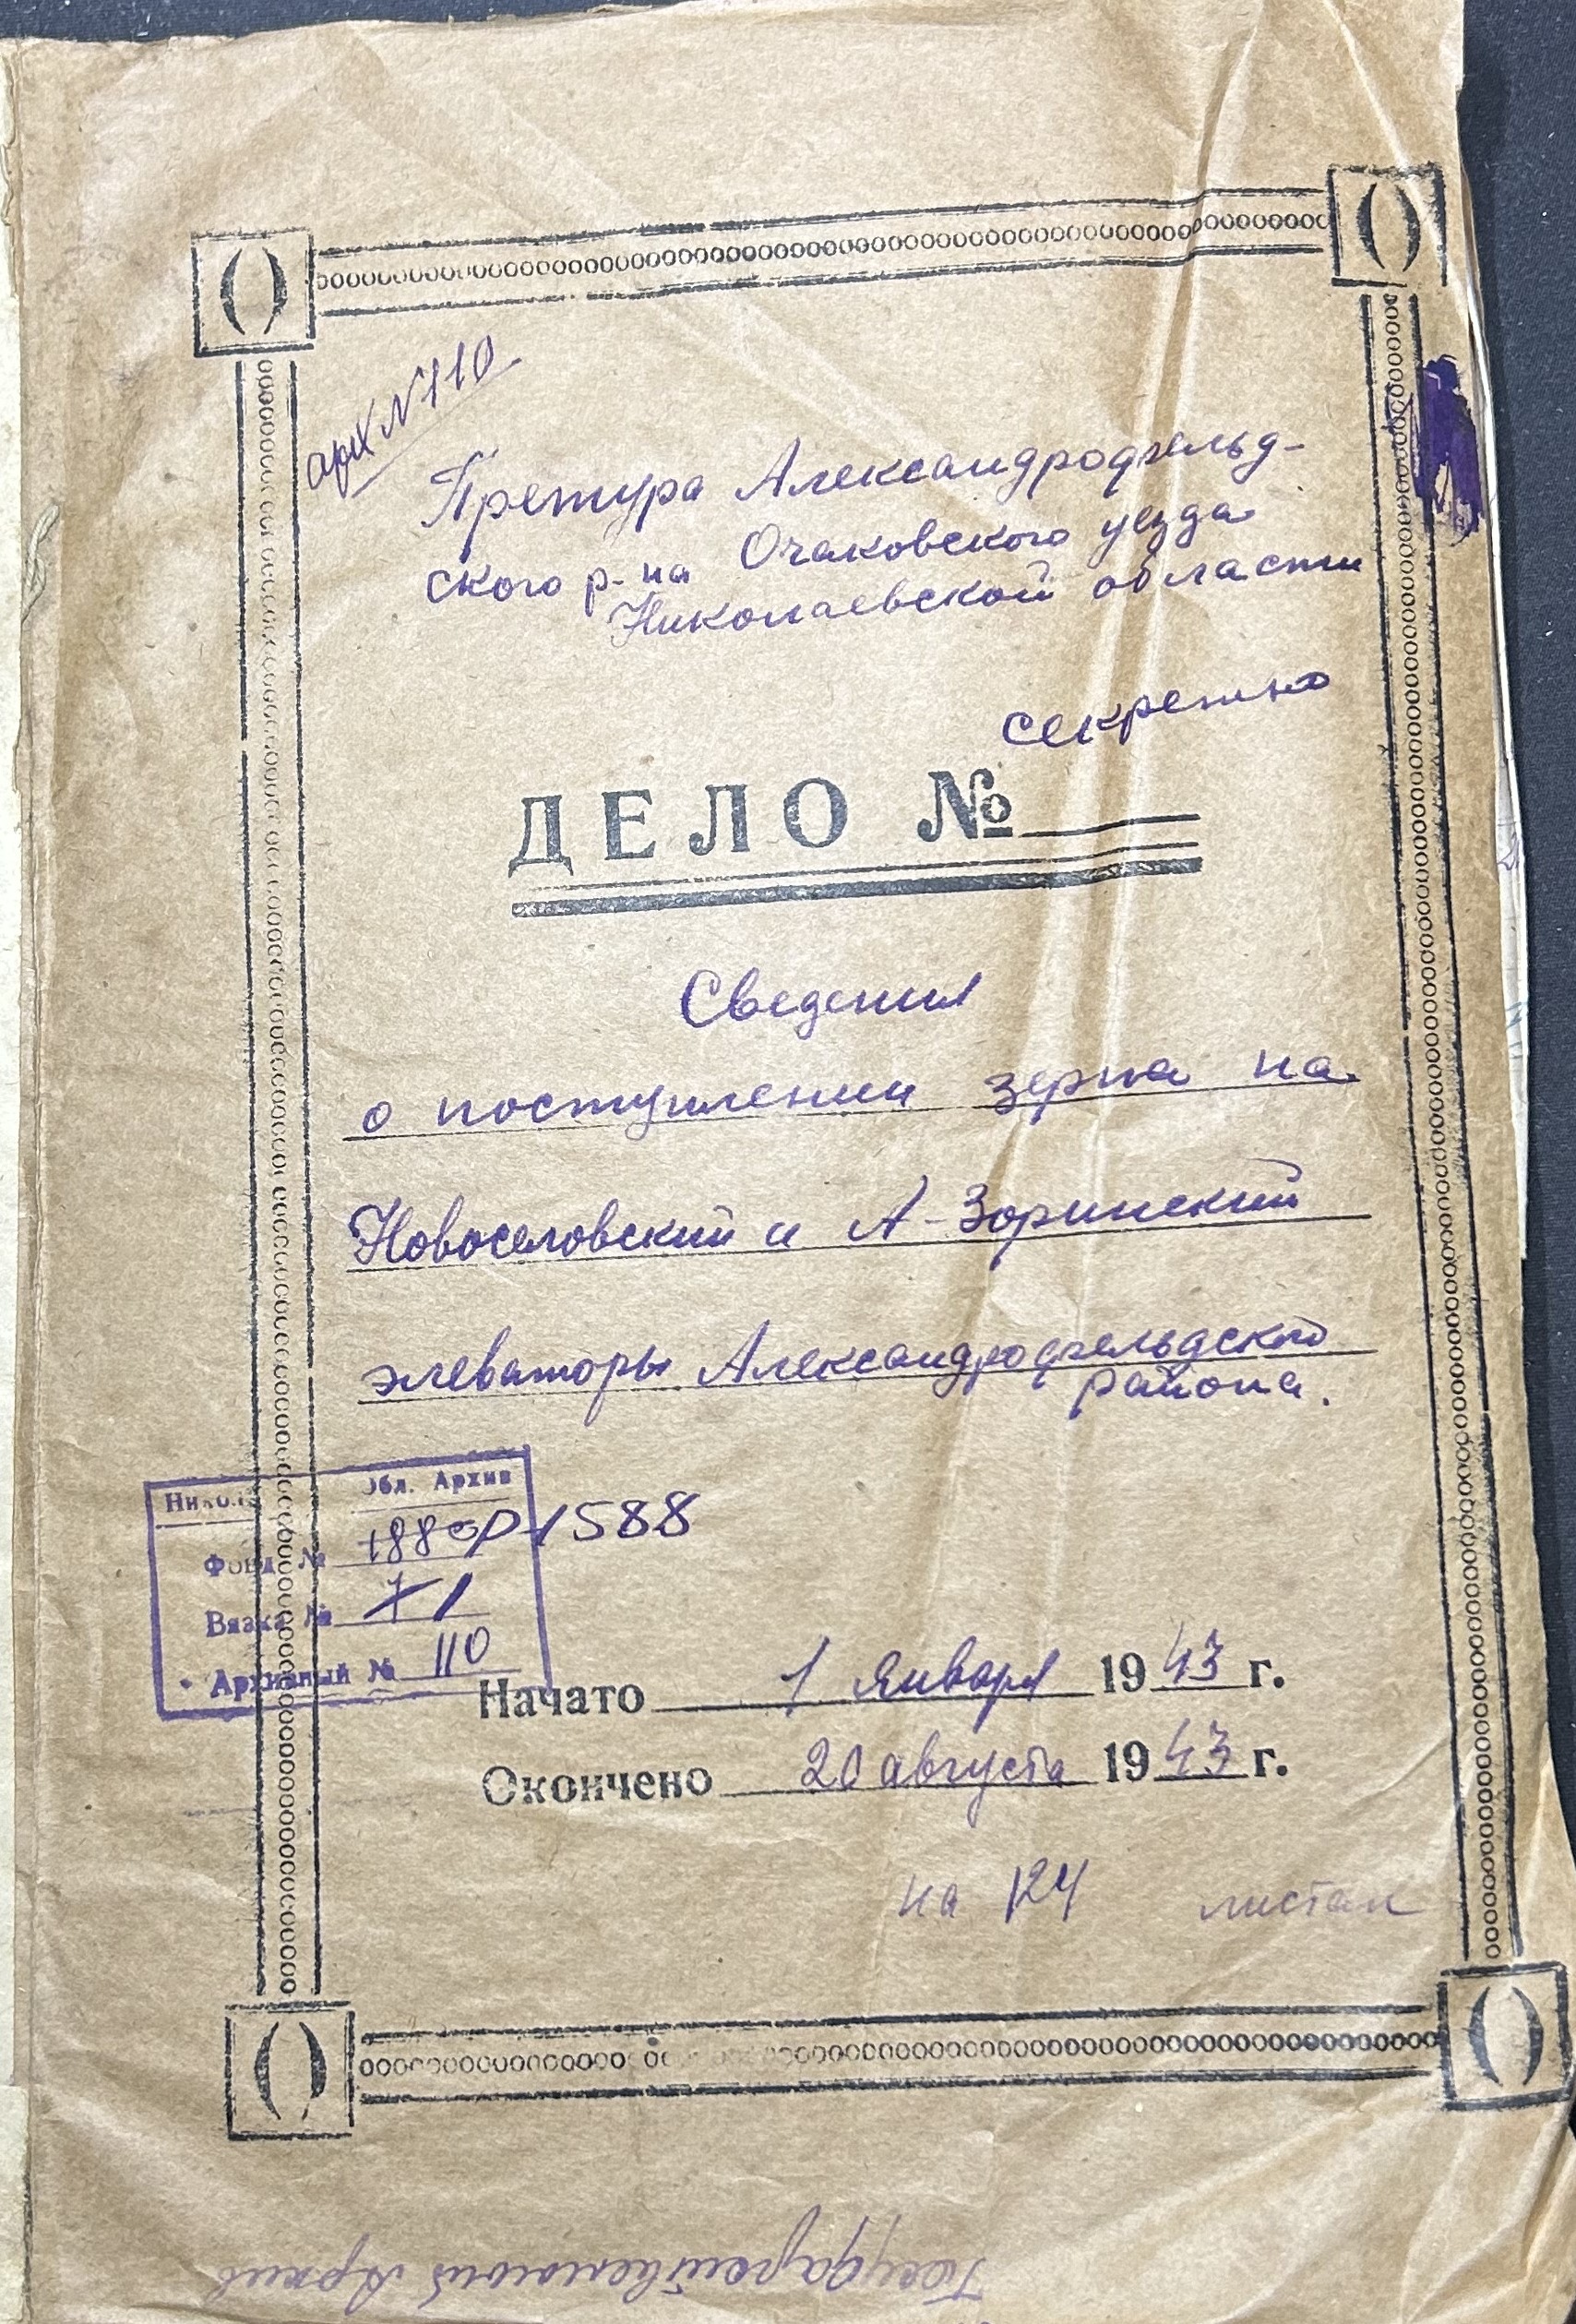 арх N 110
Претура Александрофельд-
ского р-на Очаковского уезда
Николаевской области
секретно
ДЕЛО №
Сведения
о поступлении зерна на
Новоселовский и А-Зоринский
элеваторы Александрофельдского
района.
Обл. Архив
Фонд № Р-1588
Вязка № 1
Архивный № 110
Начато 1 января 1943 г.
Окончено 20 августа 1943 г.
на 124 листах
Государственный Архив